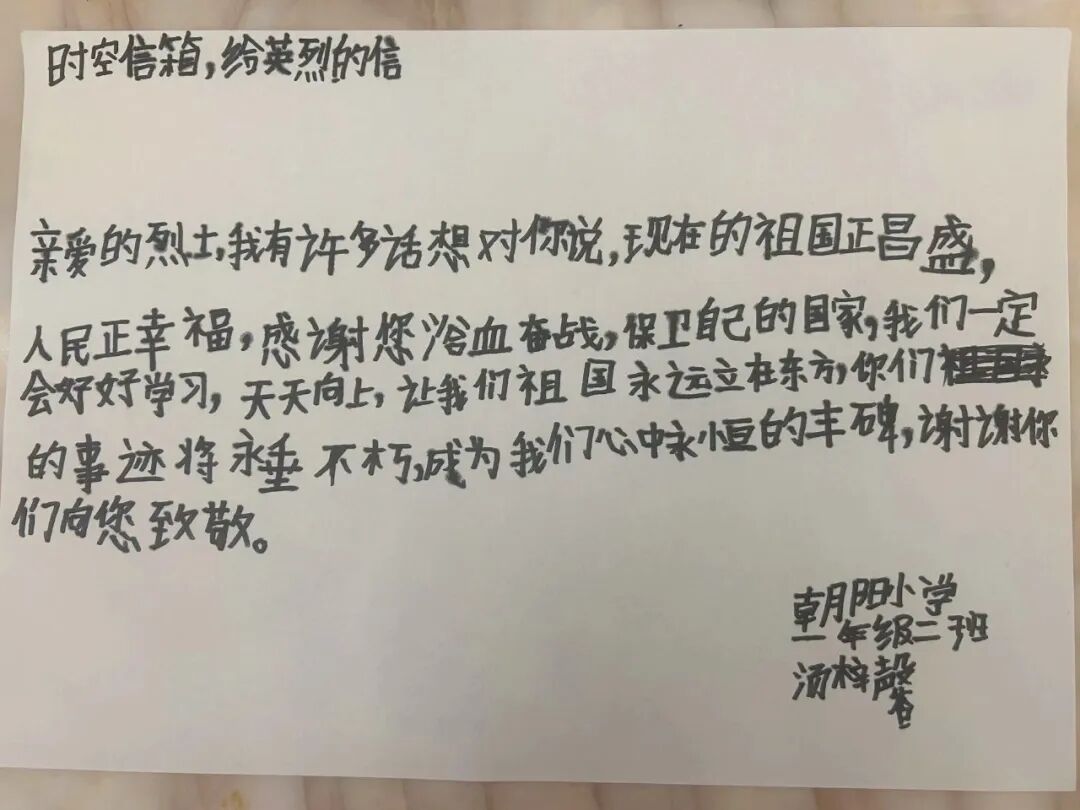 时空信箱,给英烈的信
亲爱的烈士,我有许多话想对你说,现在的祖国正昌盛,
人民正幸福,感谢您浴血奋战,保卫自己的国家,我们一定
会好好学习,天天向上,让我们祖国永远立在东方,你们
的事迹将永垂不朽,成为我们心中永恒的丰碑,谢谢你
们向您致敬。
朝阳小学
一年级二班
汤梓馨